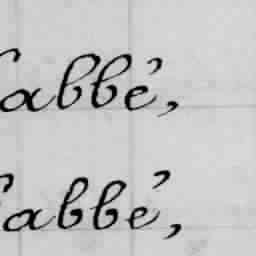 l'abbé,
l'abbé,